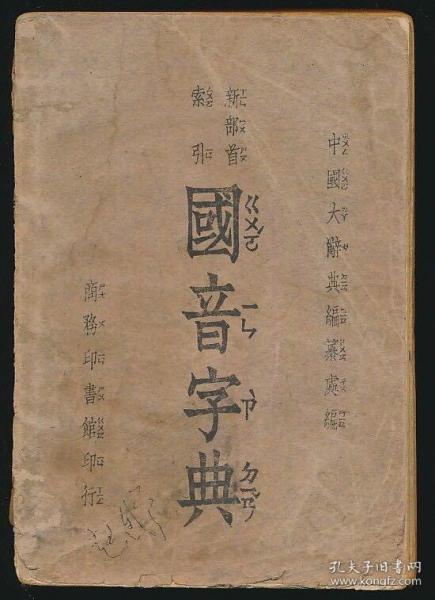 中國大辭典編纂處編
新部首
索引
國音字典
ㄍㄨㄛ
ㄧㄣ
ㄗ
ㄉㄧㄢ
商務印書館印行
孔夫子旧书网
www.kongfz.com